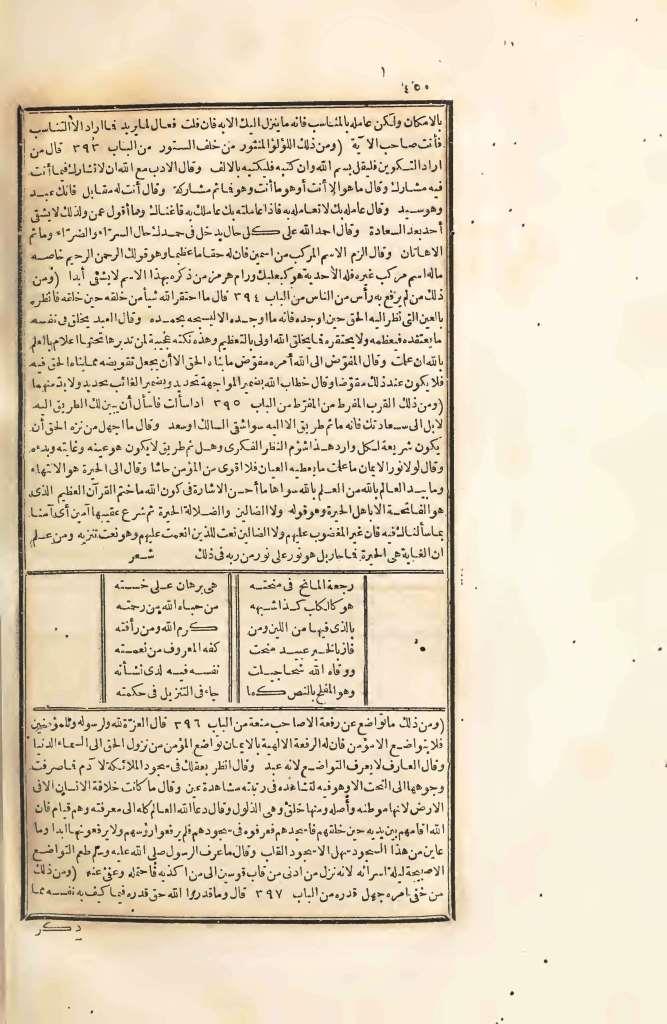 ٤٥٥
بالامكان ولكن عامله بالمناسب فانه ما ينزل اليك الا به فان قلت فعال لما يريد فما اراد الا التناسب
فأنت صاحب الآية (ومن ذلك اللؤلؤ المنثور من خلف الستور من الباب ٣٩٣ قال من
اراد التكوين فليقل بسم الله وان كتبه فليكتبه بالالف وقال الادب مع الله ان لا تشاركه فيما أنت
فيه مشارك وقال ما هو الا أنت أو هو ما أنت وهو فما ثم مشاركة وقال أنت له مقابل فانك عبد
وهو سيد وقال عامله بك لا تعامله به فاذا عاملته بك عاملك به فاغناك وما أقول عمن ولذلك لا يشقى
أحد بعد السعادة وقال احمد الله على كل حال يدخل في حمدك حال السراء والضراء وما ثم
الا هاتان وقال الزم الاسم المركب من اسمين فان له حقا عظيما وهو قولك الرحمن الرحيم خاصة
ما له اسم مركب غيره فله الاحدية هو كبعلبك ورام هرمز من ذكره بهذا الاسم لا يشقى أبدا (ومن
ذلك من لم يرفع به رأس من الناس من الباب ٣٩٤ قال ما احتقر الله شيأ من خلقه حين خلقه فانظره
بالعين التى نظر اليه الحق حين اوجده فانه ما اوجده الا ليسبحه بحمده وقال العبد يخلق فى نفسه
ما يعتقده فيعظمه ولا يحتقره فما يخلق الله اولى بالتعظيم وهذه نكتة عجيبة لمن تدبرها تحتها اعلام بالعلم
بالله ان علمت وقال المفوّض الى الله أمره مفوّض ما بناه الحق الا أن يجعل تفويضه مما بناه الحق فيه
فلا يكون عند ذلك مفوّضا وقال خطاب الله بضمير المواجهة تحديد وبضمير الغائب تحديد ولا بد منهما
(ومن ذلك القرب المفرط من المفرّط من الباب ٣٩٥ اذا سألت فاسأل أن يبين لك الطريق اليه
لا بل الى سعادتك فانه ما ثم طريق الا اليه سواء شقى السالك او سعد وقال ما اجهل من نزه الحق أن
يكون شريعة لكل وارد هذا شؤم النظر الفكرى وهل ثم طريق لا يكون هو عينه وغايته وبدءه
وقال لولا نور الايمان ما علمت ما يعطيه العيان فلا اقوى من المؤمن حاشا وقال الى الحيرة هو الانتهاء
وما بيد العالم بالله من العلم بالله سواها ما أحسن الاشارة فى كون الله ما ختم القرآن العظيم الذى
هو الفاتحة الا باهل الحيرة وهو قوله ولا الضالين والضلالة الحيرة ثم شرع عقيبها آمين أى آمنا
بما سألناك فيه فان غير المغضوب عليهم ولا الضالين نعت للذين انعمت عليهم وهو نعت تنزيه ومن علم
ان الغاية هى الحيرة فما حار بل هو نور على نور من ربه فى ذلك شعر
رجعة المانح فى منحته هى برهان على خسته
هو كالكلب كذا شبهه من حباه الله من رحمته
بالذى فيها من اللين ومن كرم الله ومن رأفته
فاز بالخير عبيد منحت كفه المعروف من نعمته
ووقاه الله شحا جبلت نفسه فيه لدى نشأته
وهو المفلح بالنص كما جاء فى التنزيل فى حكمته
(ومن ذلك ما تواضع عن رفعة الا صاحب منعة من الباب ٣٩٦ قال العزة لله ولرسوله وللمؤمنين
فلا يتواضع الا مؤمن فان له الرفعة الالهية بالايمان تواضع المؤمن من نزول الحق الى السماء الدنيا
وقال العارف لا يعرف التواضع لانه عبد وقال انظر بعقلك فى سجود الملائكة لآدم فما صرفت
وجوهها الى التحت الا وهو فيه لتشاهده فى رتبته مشاهدة عين وقال ما كانت خلافة الانسان الا فى
الارض لانها موطنه وأصله ومنها خلق وهى الذلول وقال دعا الله العالم كله الى معرفته وهم قيام فان
الله اقامهم بين يديه حين خلقهم فاسجدهم فعرفوه فى سجودهم فلم يرفعوا رؤسهم ولا يرفعونها ابدا وما
عاين من هذا السجود سهل الا سجود القلب وقال ما عرف الرسول صلى الله عليه وسلم طعم التواضع
الا صبيحة ليلة اسرائه لانه نزل من ادنى من قاب قوسين الى من اكذبه فاحتمله وعفى عنه (ومن ذلك
من خفى امره جهل قدره من الباب ٣٩٧ قال وما قدروا الله حق قدره فيما كيف به نفسه مما
ذكر